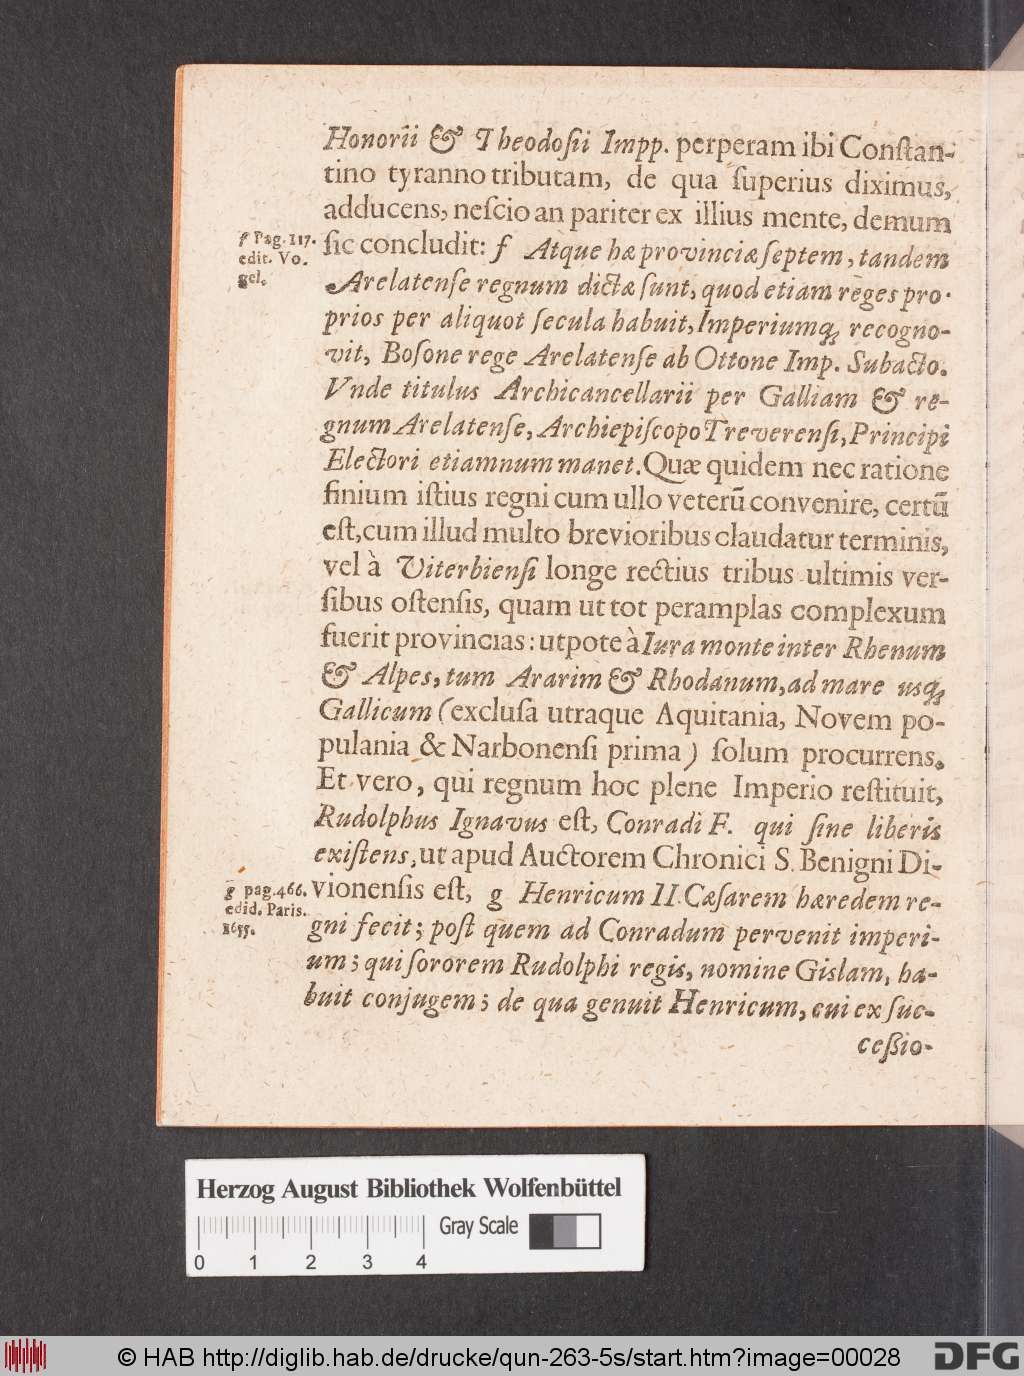 Honorii & Theodoſii Impp. perperam ibi Conſtan-
tino tyranno tributam, de qua ſuperius diximus,
adducens, neſcio an pariter ex illius mente, demum
ſic concludit: f Atque hæ provinciæ ſeptem, tandem
f Pag. 117.
edit. Vo.
gel.
Arelatenſe regnum dictæ ſunt, quod etiam reges pro-
prios per aliquot ſecula habuit, Imperiumq; recogno-
vit, Boſone rege Arelatenſe ab Ottone Imp. Subacto.
Vnde titulus Archicancellarii per Galliam & re-
gnum Arelatenſe, Archiepiſcopo Treverenſi, Principi
Electori etiamnum manet. Quæ quidem nec ratione
finium iſtius regni cum ullo veterū convenire, certū
eſt, cum illud multo brevioribus claudatur terminis,
vel à Viterbienſi longe rectius tribus ultimis ver-
ſibus oſtenſis, quam ut tot peramplas complexum
fuerit provincias: utpote à Iura monte inter Rhenum
& Alpes, tum Ararim & Rhodanum, ad mare usq;
Gallicum (excluſa utraque Aquitania, Novem po-
pulania & Narbonenſi prima) ſolum procurrens.
Et vero, qui regnum hoc plene Imperio reſtituit,
Rudolphus Ignavus eſt, Conradi F. qui ſine liberis
exiſtens, ut apud Auctorem Chronici S. Benigni Di-
vionenſis eſt, g Henricum II. Cæſarem hæredem re-
g pag. 466.
edid. Paris.
1655.
gni fecit; poſt quem ad Conradum pervenit imperi-
um; qui ſororem Rudolphi regis, nomine Gislam, ha-
buit conjugem; de qua genuit Henricum, cui ex ſuc-
ceſſio-
Herzog August Bibliothek Wolfenbüttel
Gray Scale
0 1 2 3 4
© HAB http://diglib.hab.de/drucke/qun-263-5s/start.htm?image=00028
DFG